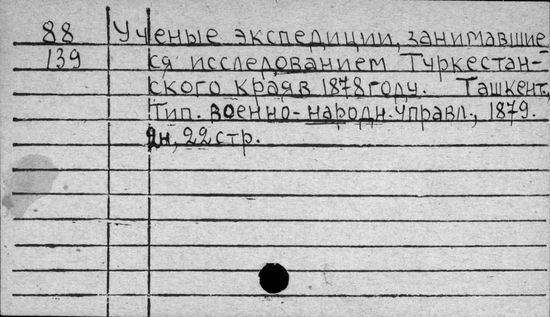 88 Ученые экспедиции, занимавшие-
139 ся исследованием Туркестан-
ского края в 1878 году. Ташкент,
Тип. военно-народн. управл., 1879.
2н, 22 стр.